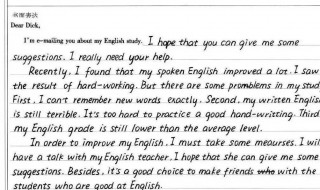 书面表达
Dear Dick,
I'm e-mailing you about my English study. I hope that you can give me some
suggestions. I really need your help.
Recently, I found that my spoken English improved a lot. I saw
the result of hard-working. But there are some promblems in my stud
First, I can't remember new words exactly. Second, my written Englis
is still terrible. It's too hard to practice a good hard-writting. Third
my English grade is still lower than the average level.
In order to improve my English, I must take some meaurses. I will
have a talk with my English teacher. I hope that she can give me some
suggestions. Besides, it's a good choice to make friends who with the
students who are good at English.